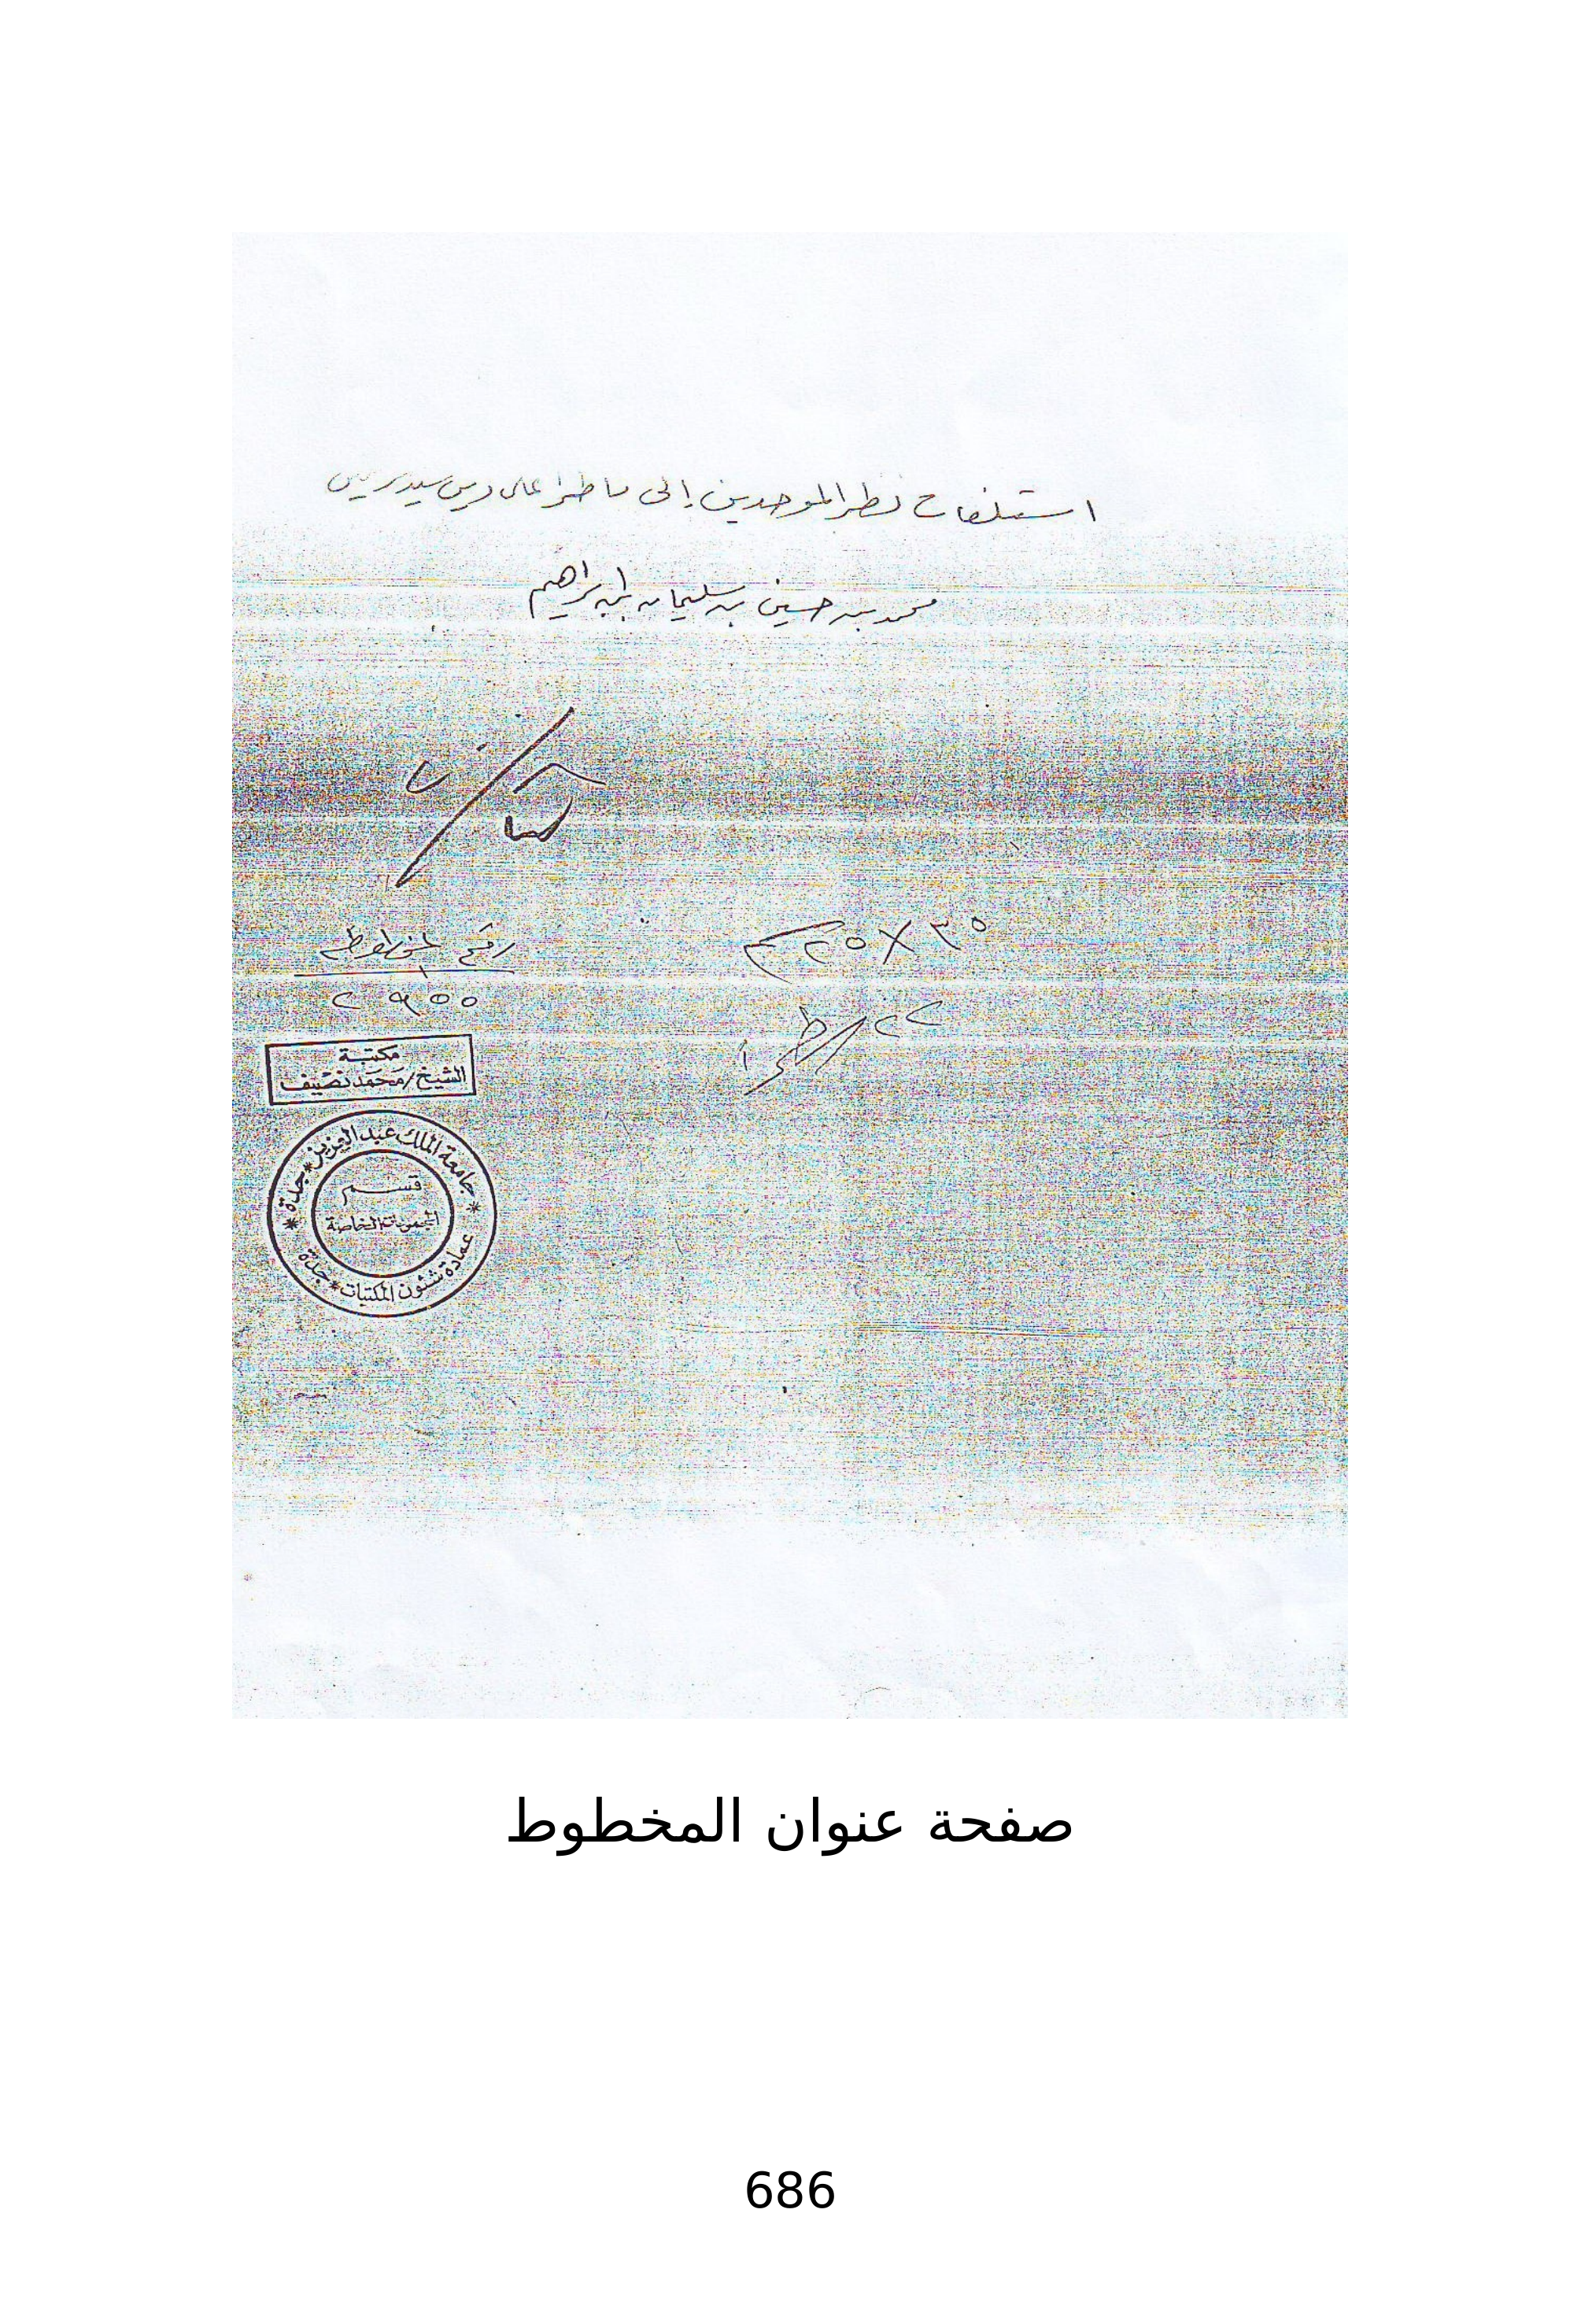 استلفات نظر الموحدين إلى ما طرأ على دين سيد
محمد بن حسين بن سليمان بن إبراهيم
٢٥ X ٣٥
٢٢
رقم المخطوط
٢٩٥٥
مكتبة
الشيخ/محمد نصيف
جامعة الملك عبد العزيز * جدة
قسم
المجموعات الخاصة
عمادة شئون المكتبات * جدة
صفحة عنوان المخطوط
686